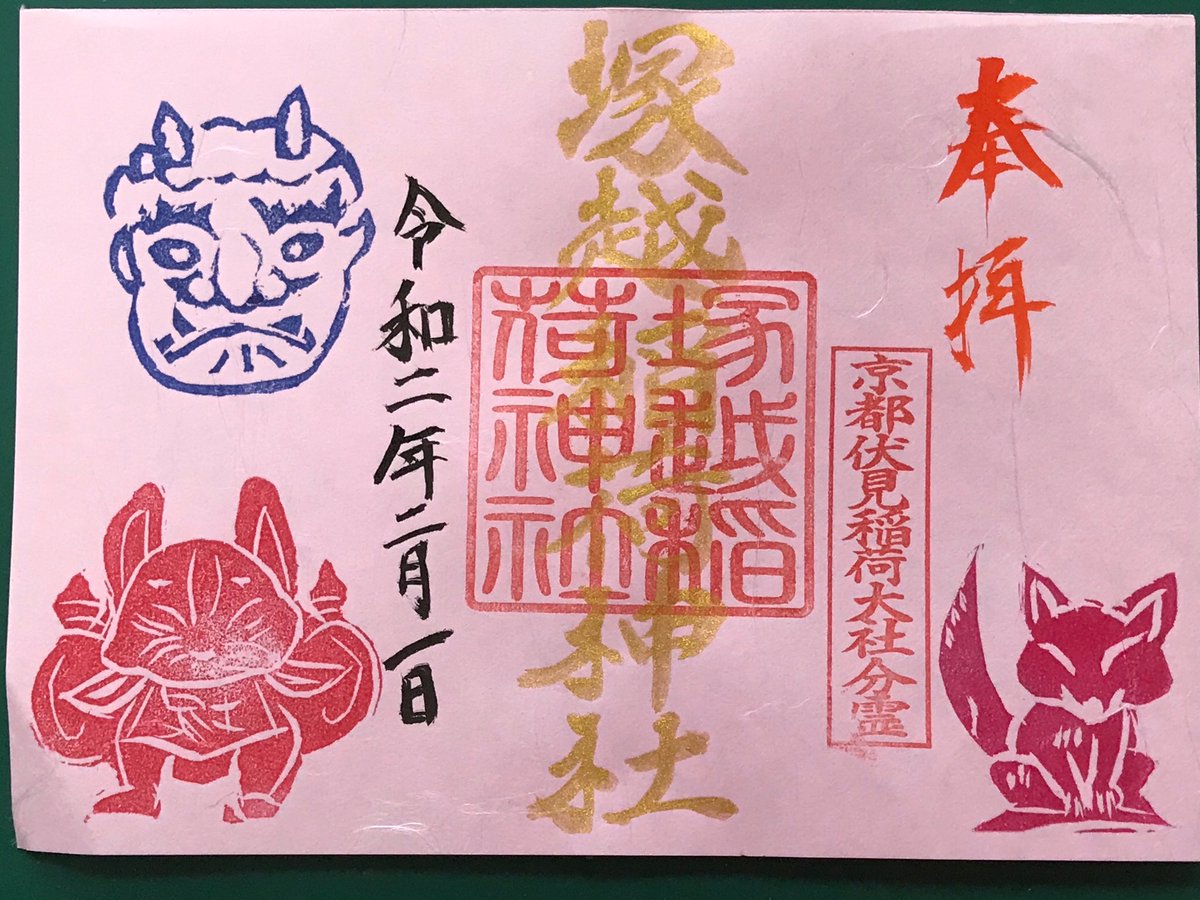 奉拝
京都伏見稲荷大社分霊
塚越稲荷神社
塚越稲
荷神社
令和二年二月一日